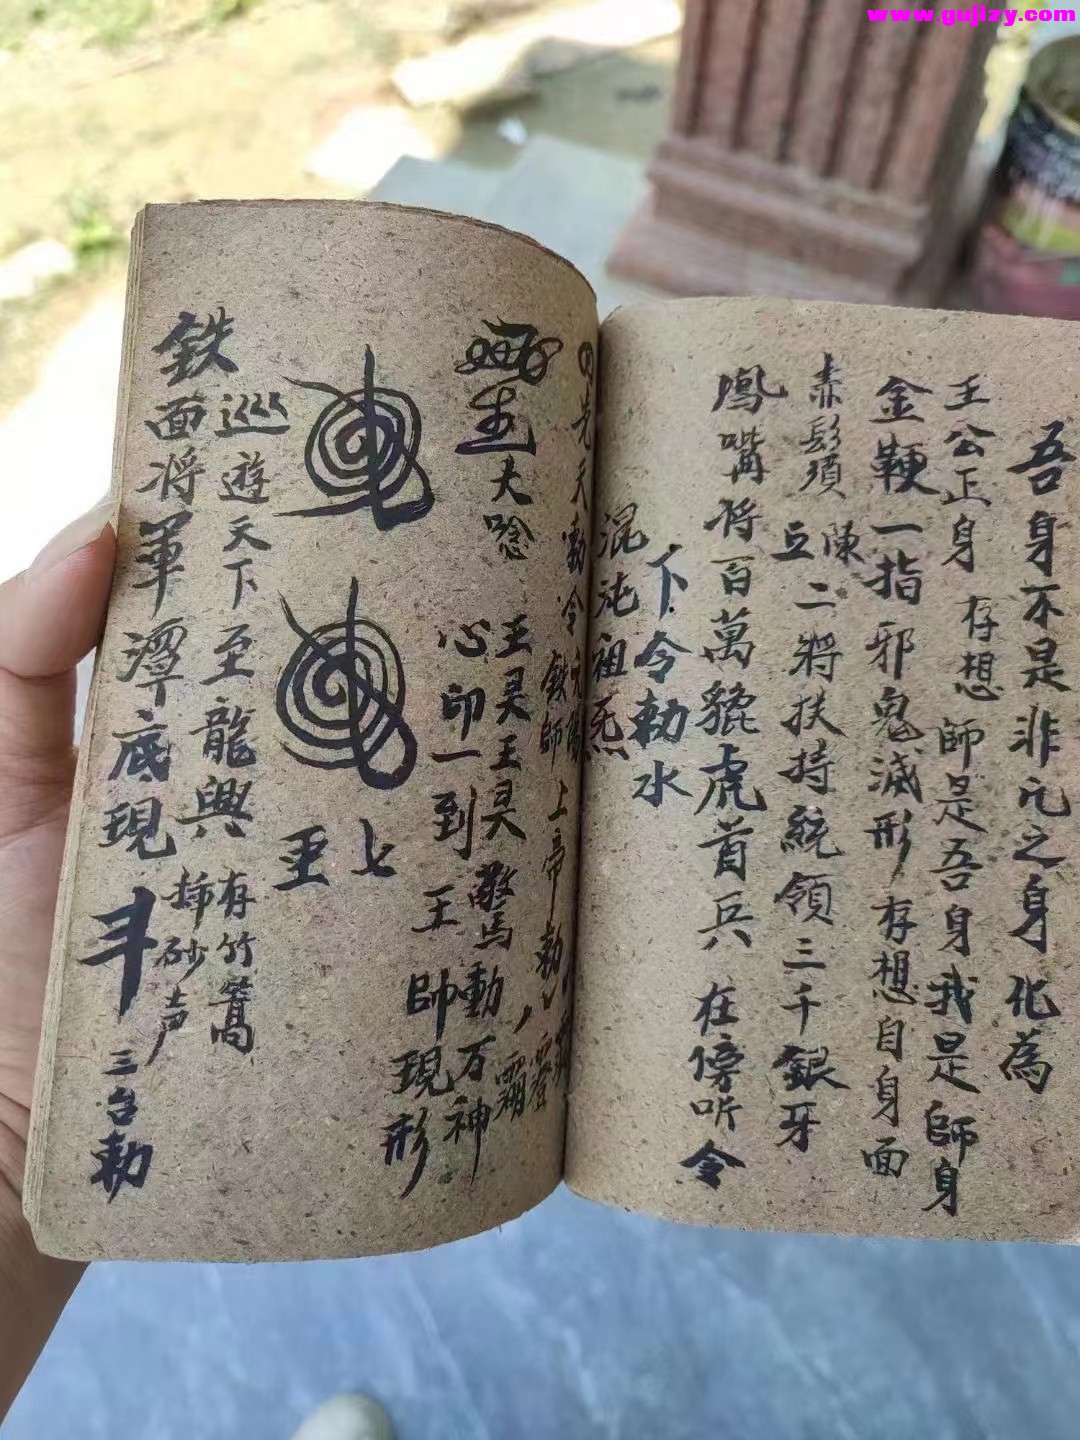 www.gujizy.com
吾身不是非凡之身化為
王公正身 存想 師是吾身我是師身
金鞭一指邪鬼滅形 存想自身面
赤鬍鬚 陳立二將扶持統領三千銀牙
鳳嘴將百萬貔虎首兵 在傍听令
下令勅水
混沌祖炁
先天勅令
鉄師上帝勅
大唸 王昊王昊驚動万神
心印一到 王帥現形
七
巡遊天下至龍興 有竹篙
插砂声
鉄面将軍潭底現 斗 三台勅